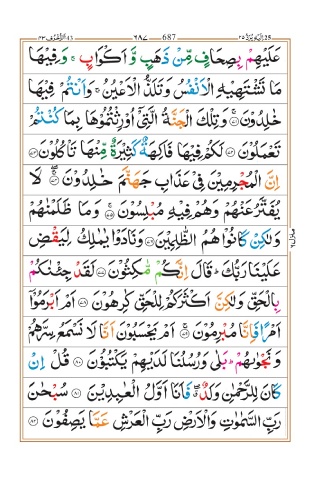 الزخرف ٤٣ ٦٨٧ 687 اليه يرد ٢٥
عَلَيْهِمْ بِصِحَافٍ مِّنْ ذَهَبٍ وَّ اَكْوَابٍ ۚ وَ فِيْهَا
مَا تَشْتَهِيْهِ الْاَنْفُسُ وَ تَلَذُّ الْاَعْيُنُ ۚ وَ اَنْتُمْ فِيْهَا
خٰلِدُوْنَ ۝٧١ وَ تِلْكَ الْجَنَّةُ الَّتِيْۤ اُوْرِثْتُمُوْهَا بِمَا كُنْتُمْ
تَعْمَلُوْنَ ۝٧٢ لَكُمْ فِيْهَا فَاكِهَةٌ كَثِيْرَةٌ مِّنْهَا تَاْكُلُوْنَ ۝٧٣
اِنَّ الْمُجْرِمِيْنَ فِيْ عَذَابِ جَهَنَّمَ خٰلِدُوْنَ ۝٧٤ لَا
يُفَتَّرُ عَنْهُمْ وَ هُمْ فِيْهِ مُبْلِسُوْنَ ۝٧٥ وَ مَا ظَلَمْنٰهُمْ
وَ لٰكِنْ كَانُوْا هُمُ الظّٰلِمِيْنَ ۝٧٦ وَ نَادَوْا يٰمٰلِكُ لِيَقْضِ
عَلَيْنَا رَبُّكَ ؕ قَالَ اِنَّكُمْ مّٰكِثُوْنَ ۝٧٧ لَقَدْ جِئْنٰكُمْ
بِالْحَقِّ وَ لٰكِنَّ اَكْثَرَكُمْ لِلْحَقِّ كٰرِهُوْنَ ۝٧٨ اَمْ اَبْرَمُوْۤا
اَمْرًا فَاِنَّا مُبْرِمُوْنَ ۝٧٩ اَمْ يَحْسَبُوْنَ اَنَّا لَا نَسْمَعُ سِرَّهُمْ
وَ نَجْوٰىهُمْ ؕ بَلٰى وَ رُسُلُنَا لَدَيْهِمْ يَكْتُبُوْنَ ۝٨٠ قُلْ اِنْ
كَانَ لِلرَّحْمٰنِ وَلَدٌ ۖ فَاَنَا اَوَّلُ الْعٰبِدِيْنَ ۝٨١ سُبْحٰنَ
رَبِّ السَّمٰوٰتِ وَ الْاَرْضِ رَبِّ الْعَرْشِ عَمَّا يَصِفُوْنَ ۝٨٢
منزل ٦